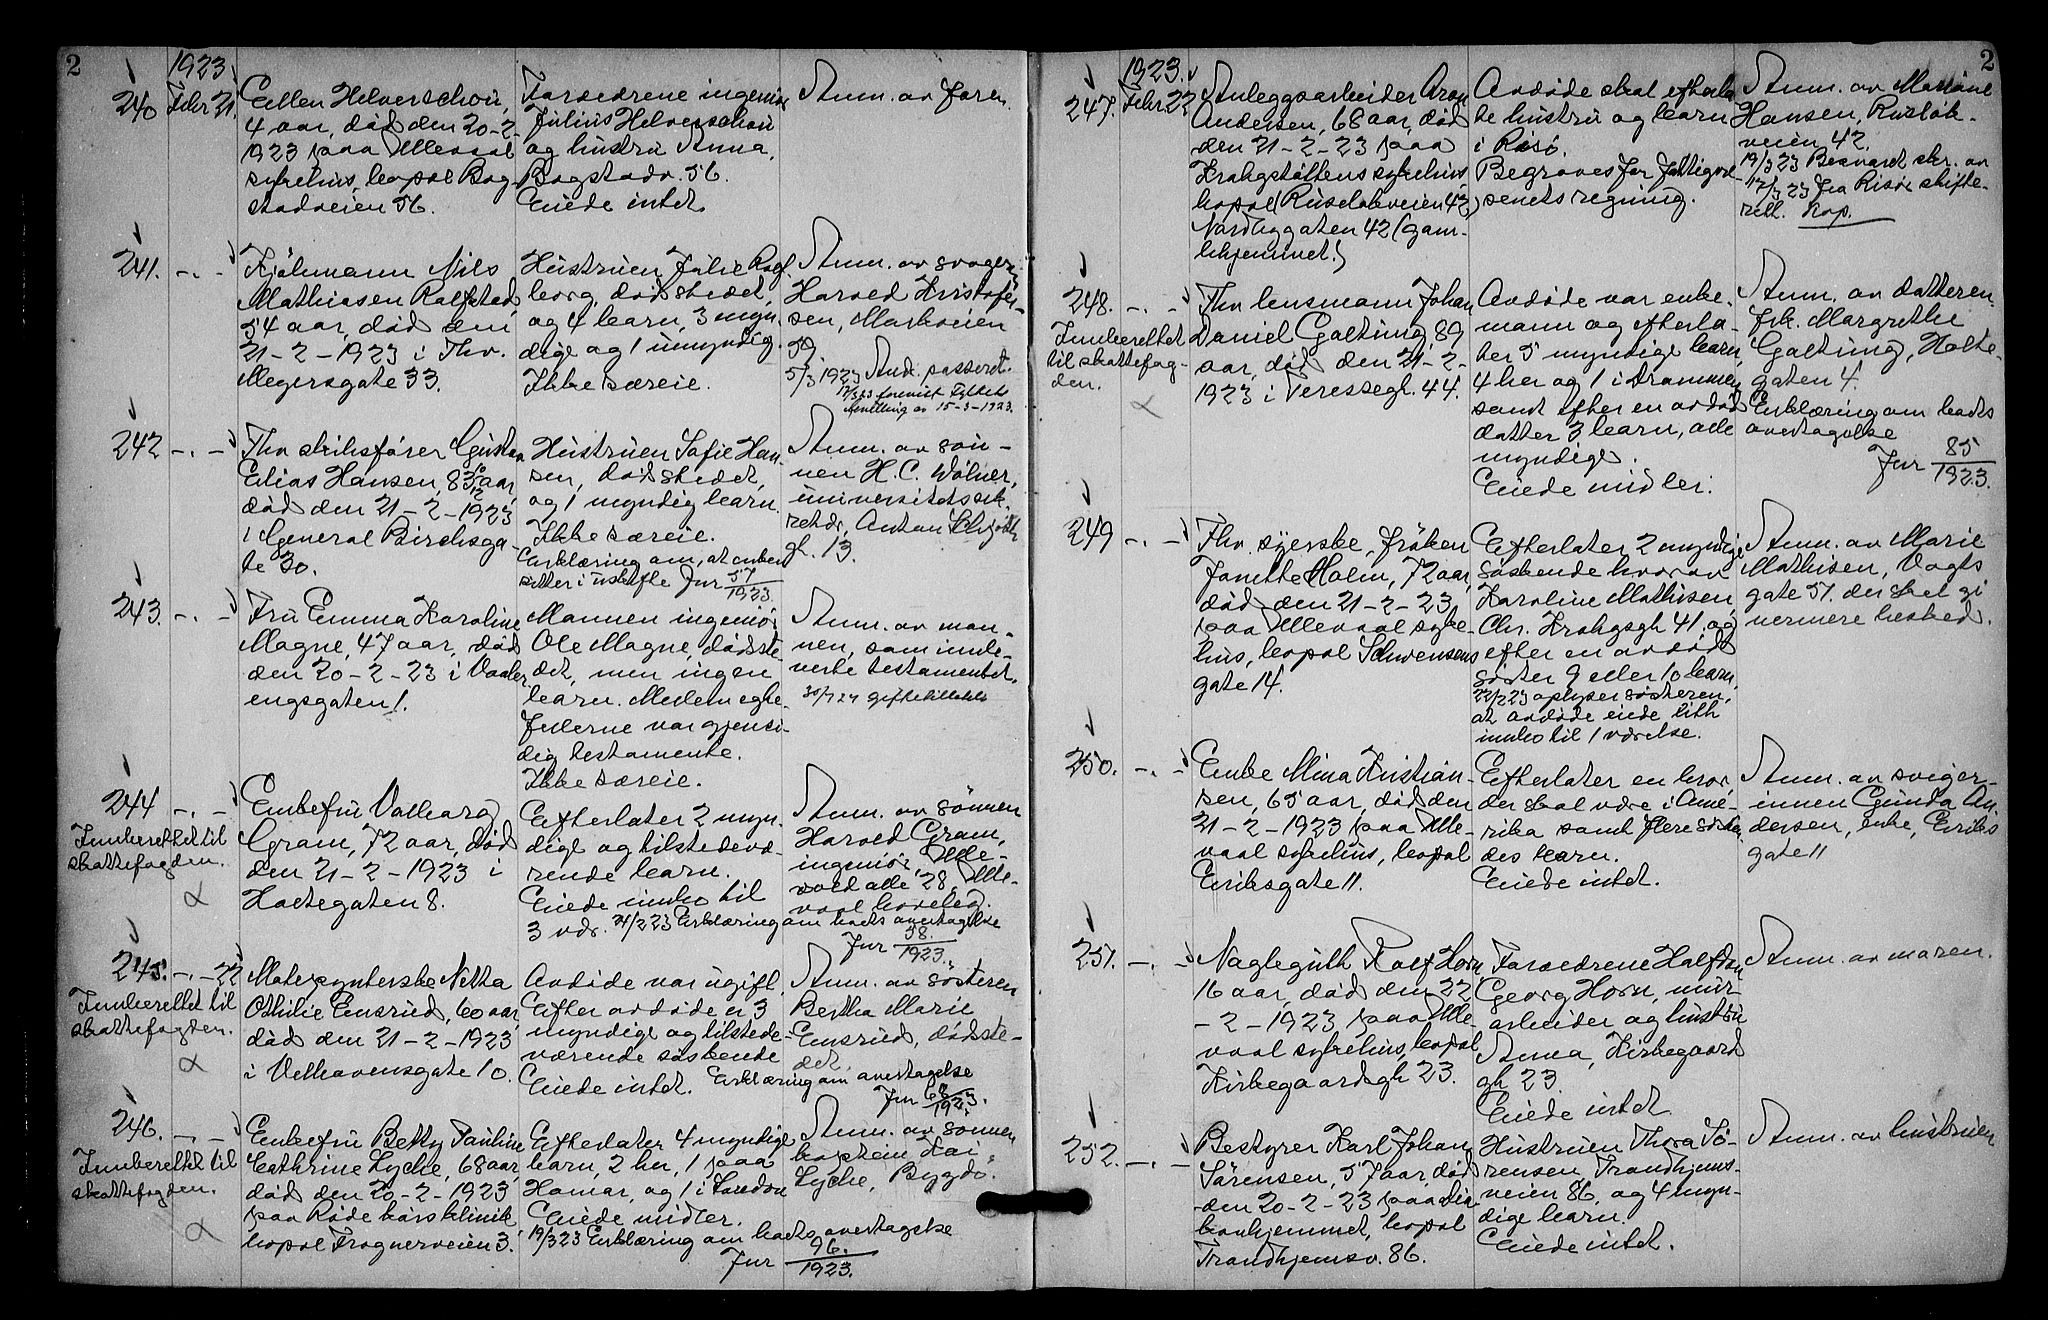 2
1923
240 Febr 21.
Ellen Helverschou,
4 aar, død den 20-2-
1923 paa Ullevaal
sykehus, bopæl Bog-
stadveien 56.
Forældrene ingeniør
Julius Helverschou
og hustru Anna,
Bogstadv. 56.
Eiede intet.
Anm. av faren.
241. -.-
Kjølemann Nils
Mathiasen Ralfsted,
54 aar, død den
21-2-1923 i Thv.
Meyersgate 33.
Hustruen Julie
borg, dødstedet,
og 4 barn, 3 myn-
dige og 1 umyndig.
Ikke særeie.
Anm. av svogeren
Harald Kristofer-
sen, Markveien
59.
5/3 1923 And. passeret.
15-3-1923.
242 -.-
Fhv. skibsfører Gustav
Elias Hansen, 83 aar,
død den 21-2-1923
i General Birchsga-
te 30.
Hustruen Sofie Han-
sen, dødstedet,
og 1 myndig barn.
Ikke særeie.
Erklæring om, at enken
sitter i uskifte Jnr 57
1923.
Anm. av søn-
nen H.C. Wølner,
universitetssek-
retær, Anton Schjøths
gt. 13.
243. -.-
Fru Emma Karoline
Magne, 47 aar, død
den 20-2-23 i Vaaler-
engsgaten 1.
Mannen ingeniør
Ole Magne, dødste-
det, men ingen
barn. Mellem egte-
fellerne var gjensi-
dig testamente.
Ikke særeie.
Anm. av man-
nen, som inle-
verte testamentet.
244 -.-
Innberettet til
skattefogden.
Enkefru Valborg
Gram, 72 aar, død
den 21-2-1923 i
Holtegaten 8.
Efterlater 2 myn-
dige og tilstedevæ-
rende barn.
Eiede innbo til
3 vær. 24/2 23 Erklæring om boets overtagelse
Jnr 58.
1923.
Anm. av sønnen
Harald Gram,
ingeniør, Ulle-
vold alle 28, Ulle-
vaal haveby.
245. -.- 22
Innberettet til
skattefogden.
Matsynterske Netta
Othilie Ensrud, 60 aar
død den 21-2-1923
i Welhavensgate 10.
Avdøde var ugift.
Efter avdøde er 3
myndige og tilstede-
værende søskende
Eiede intet. Erklæring om overtagelse
Jnr 68
1923.
Anm. av søsteren
Bertha Marie
Ensrud, dødste-
det.
246. -.-
Innberettet til
skattefogden.
Enkefru Betty Pauline
Cathrine Lyche, 68 aar,
død den 20-2-1923
paa Røde kors klinik,
bopæl Frognerveien 3.
Efterlater 4 myndige
barn, 2 her, 1 paa
Hamar, og 1 i London
Eiede midler.
19/3 23 Erklæring om boets overtagelse
Jnr 96.
1923.
Anm. av sønnen
kaptein Kai
Lyche, Bygdø.
2
1923.
247. Febr 22
Anleggsarbeider Aron
Andersen, 68 aar, død
den 21-2-23 paa
Krohgstøttens sykehus,
bopæl (Ruseløkveien 42,)
Nordbygaten 42 (gam-
lehjemmet!)
Avdøde skal efterla-
te hustru og barn
i Risør.
Begraves for fattigvæ-
senets regning.
Anm. av Mariane
Hansen, Ruseløk-
veien 42.
19/3 23 Besvaret skr. av
17/3 23 fra Risør skifte-
rett. Kop.
248. -.-
Innberettet
til skattefog-
den.
Fhv lensmann Johan
Daniel Galtung, 89
aar, død den 21-2-
1923 i Veressegt. 44.
Avdøde var enke-
mann og efterla-
ter 5 myndige barn,
4 her og 1 i Drammen,
samt efter en avdød
datter 3 barn, alle
myndige.
Eiede midler.
Anm. av datteren
frk. Margrethe
Galtung, Holte-
gaten 4.
Erklæring om boets
overtagelse
Jnr 85
1923.
249 -.-
Fhv. syerske, frøken
Janette Holm, 72 aar,
død den 21-2-23
paa Ullevaal syke-
hus, bopæl Schwensens
gate 14.
Efterlater 2 myndige
søskende hvorav
Karoline Mathisen,
Chr. Krohgsgt. 41, og
efter en avdød
søster 9 eller 10 barn.
22/2 23 oplyser søsteren,
at avdøde eiede litt
innbo til 1 værelse.
Anm. av Marie
Mathisen, Vogts
gate 51. der skal gi
nermere besked.
250. -.-
Enke Mina Kristian-
sen, 65 aar, død den
21-2-1923 paa Ulle-
vaal sykehus, bopæl
Eriksgate 11.
Efterlater en bror,
der skal være i Ame-
rika samt flere søsken-
des barn.
Eiede intet.
Anm. av sviger-
innen Gunda An-
dersen, enke, Eriks
gate 11
251. -.-
Naglegutt Rolf Horn
16 aar, død den 22
-2-1923 paa Ulle-
vaal sykehus, bopæl
Kirkegaardsgt 23.
Forældrene Halfdan
Georg Horn, mur-
arbeider og hustru
Anna, Kirkegaards
gt 23.
Eiede intet
Anm. av moren.
252. -.-
Bestyrer Karl Johan
Sørensen, 57 aar, død
den 20-2-23 paa Dia-
konhjemmet, bopæl
Trondhjemsv. 86.
Hustruen Thora Sø-
rensen, Trondhjems-
veien 86, og 4 myn-
dige barn.
Eiede intet.
Anm. av hustruen